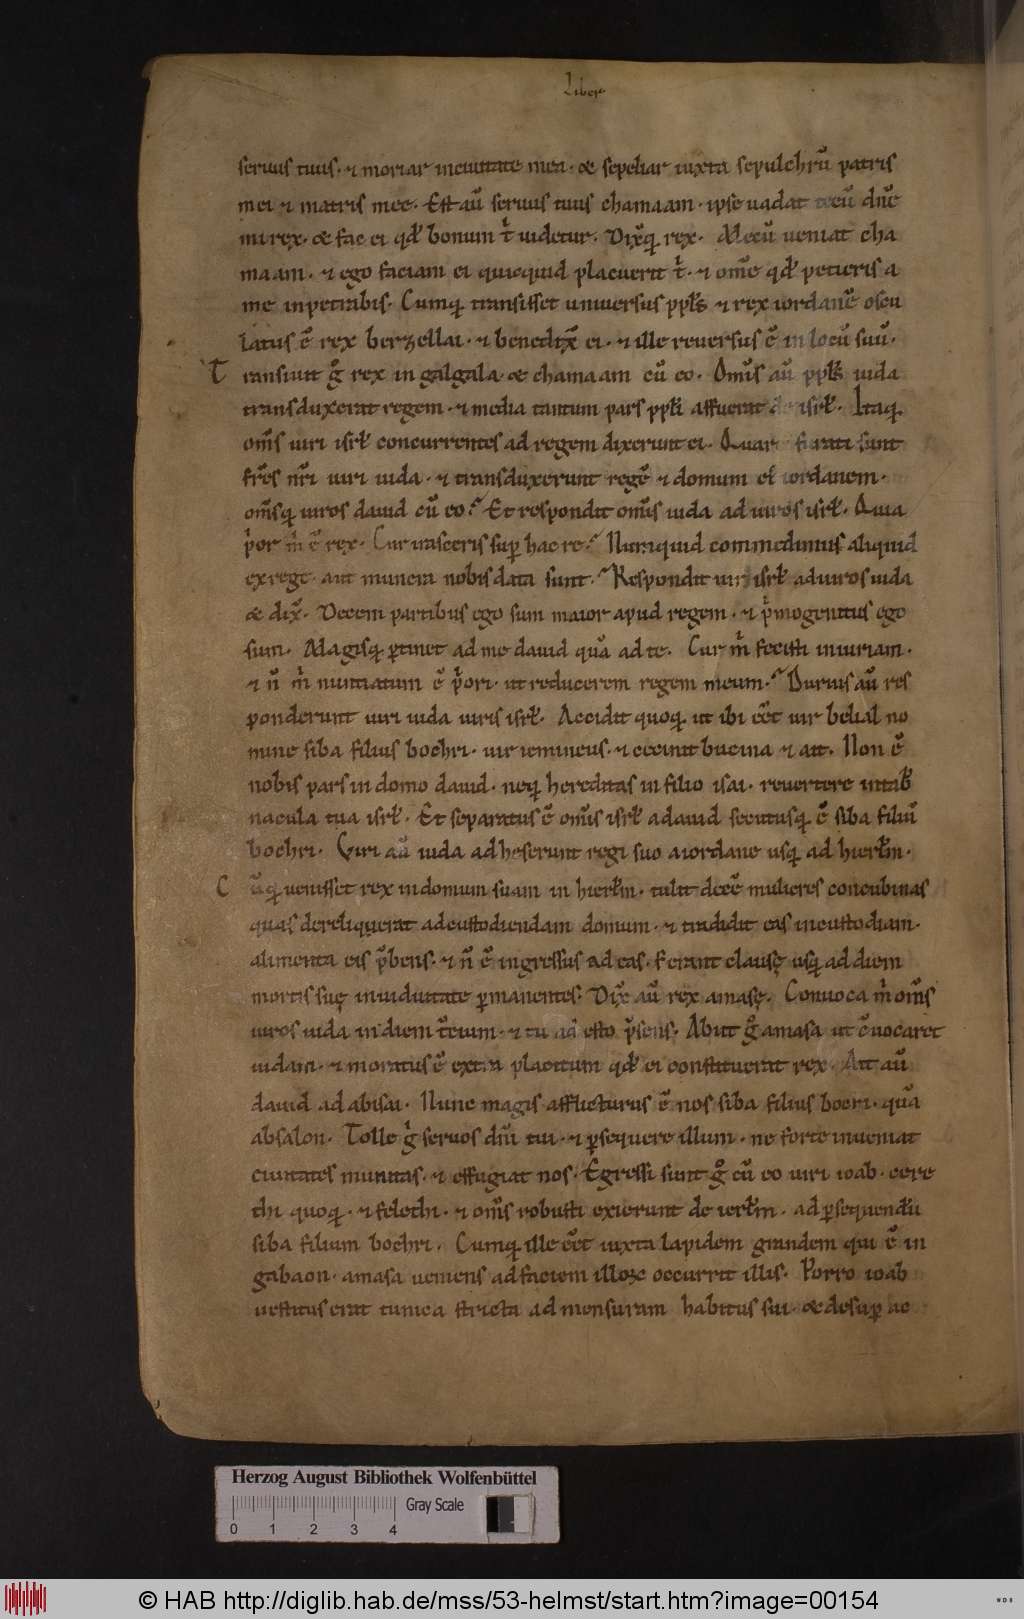 Liber
seruus tuus· ⁊ moriar inciuitate mea· & sepeliar iuxta sepulchrū patris
mei ⁊ matris meę· Est aū seruus tuus chamaam· ipse uadat tecū dn̄e
mi rex· & fac ei qd̛ bonum t̛ uidetur· Dix̄q; rex· Mecū ueniat cha
maam· ⁊ ego faciam ei quicquid placuerit t̛· ⁊ om̄e qd̛ petieris a
me inpetrabis· Cumq; transisset uniuersus ppl̄s ⁊ rex iordanē oscu
latus ē rex berzellai· ⁊ benedix̄ ei· ⁊ ille reuersus ē in locū suū·
Transiuit gͦ rex in galgala· & chamaam cū eo· Om̄is aū ppl̄s iuda
transduxerat regem· ⁊ media tantum pars ppl̄i affuerat de isrl̄· Itaq;
om̄s uiri isrl̄ concurrentes ad regem dixerunt ei· Quar furati sunt
fr̄es nr̄i uiri iuda· ⁊ transduxerunt regē ⁊ domum ei iordanem·
om̄sq; uiros dauid cū eo? Et respondit om̄is iuda ad uiros isrl̄· Quia
p̛or m̛ ē rex· Cur irasceris suꝑ hac re? Nunquid commedimus aliquid
ex rege· aut munera nobis data sunt? Respondit uir isrl̄ ad uiros iuda
& dix̄· Decem partibus ego sum maior apud regem· ⁊ p̛mogenitus ego
sum· Magisq; ꝑtinet ad me dauid quā ad te· Cur m̛ fecisti iniuriam·
⁊ n̄ m̛ nuntiatum ē p̛ori· ut reducerem regem meum? Durius aū res
ponderunt uiri iuda uiris isrl̄· Accidit quoq; ut ibi eēt uir belial no
mine siba filius bochri· uir iemineus· ⁊ cecinit bucina ⁊ ait· Non ē
nobis pars in domo dauid· neq; hereditas in filio isai· reuertere intab̄
nacula tua isrl̄· Et separatus ē om̄is isrl̄ adauid secutusq; ē siba filiū
bochri· Viri aū iuda adheserunt regi suo aiordane usq; ad hierl̄m·
Cūq; uenisset rex indomum suam in hierl̄m· tulit decē mulieres concubinas
quas dereliquerat adcustodiendam domum· ⁊ tradidit eas incustodiam·
alimenta eis p̄bens· ⁊ n̄ ē ingressus ad eas· s; erant clausę usq; ad diem
mortis suę inuiduitate ꝑmanentes· Dix̄ aū rex amasę· Conuoca m̛ om̄s
uiros iuda in diem t̄cium· ⁊ tu ad esto p̄sens· Abiit gͦ amasa ut c̄uocaret
iudam· ⁊ moratus ē extra placitum qd̛ ei constituerat rex· Ait aū
dauid ad abisai· Nunc magis afflicturus ē nos siba filius bocri· quā
absalon· Tolle g̛ seruos dn̄i tui· ⁊ ꝑsequere illum· ne forte inueniat
ciuitates munitas· ⁊ effugiat nos· Egressi sunt gͦ cū eo uiri ioab· cere
thi quoq;· ⁊ felethi· ⁊ om̄s robusti exierunt de ierl̄m· ad ꝑsequendū
siba filium bochri· Cumq; ille eēt iuxta lapidem grandem qui ē in
gabaon· amasa ueniens ad faciem illoꝝ occurrit illis· Porro ioab
uestitus erat tunica stricta ad mensuram habitus sui· & desuꝑ ac
Herzog August Bibliothek Wolfenbüttel
Gray Scale
0 1 2 3 4
© HAB http://diglib.hab.de/mss/53-helmst/start.htm?image=00154